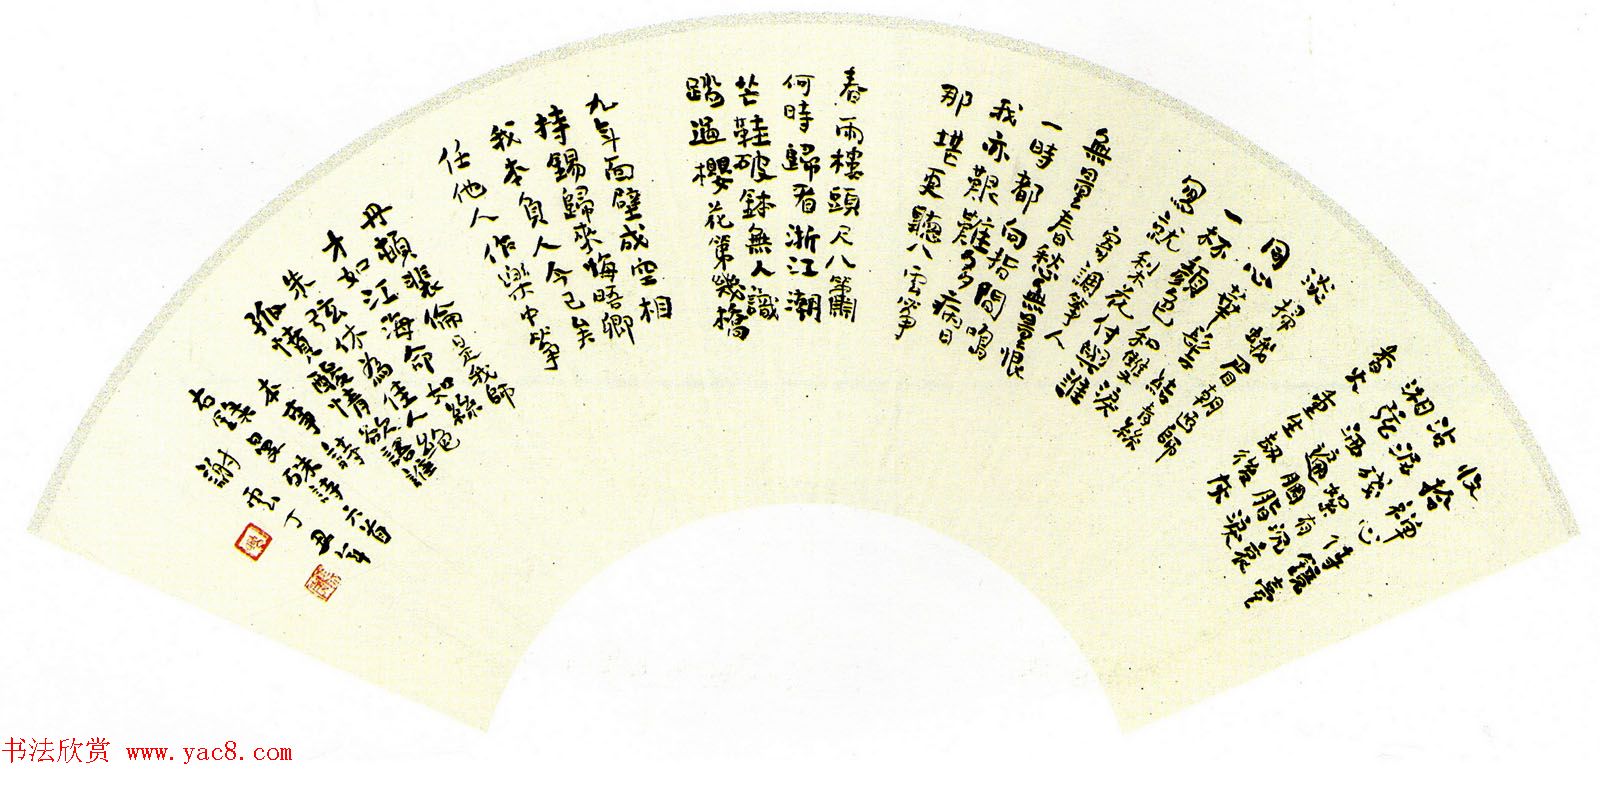 收拾禪心侍鏡臺
沾泥殘絮有沉哀
湘弦洒遍胭脂淚
香火重生劫後灰
淡掃蛾眉朝画師
同心華髻結青絲
一杯顏色和雙淚
寫就梨花付與誰
寄調箏人
無量春愁無量恨
一時都向指間鳴
我亦艱難多病日
那堪更聽八雲箏
春雨樓頭尺八簫
何時歸看浙江潮
芒鞋破鉢無人識
踏過櫻花第幾橋
九年面壁成空相
持錫歸來悔晤卿
我本負人今已矣
任他人作樂中箏
丹頓裴倫是我師
才如江海命如絲
朱弦休為佳人絕
孤憤酸情欲語誰
本事詩
右錄曼殊詩六首
謝雲丁丑年
书法欣赏 www.yac8.com